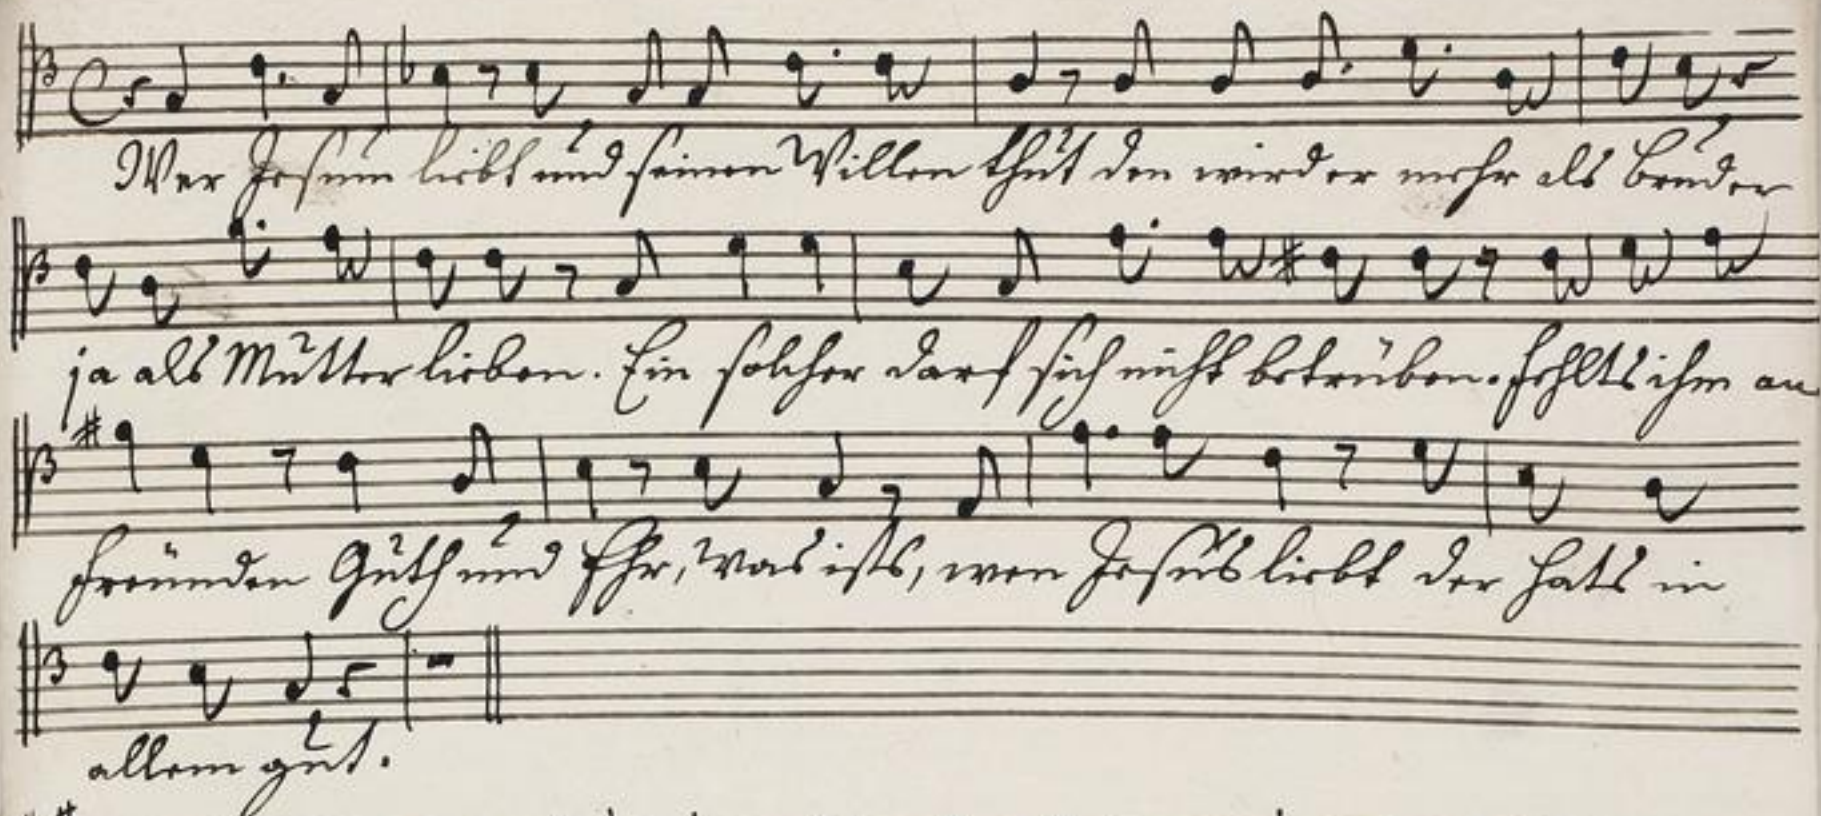 Wer Jesum liebt und seinen Willen thut den wird er mehr als Bruder
ja als Mutter lieben. Ein solcher darf sich nicht betrüben. Fehlts ihm an
Freunden Guth und Ehr, was ists, wen Jesus liebt der hats in
allem gut.